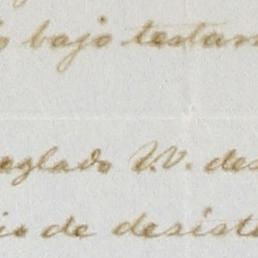 bajo testam
eglado V.V. des
io de desista